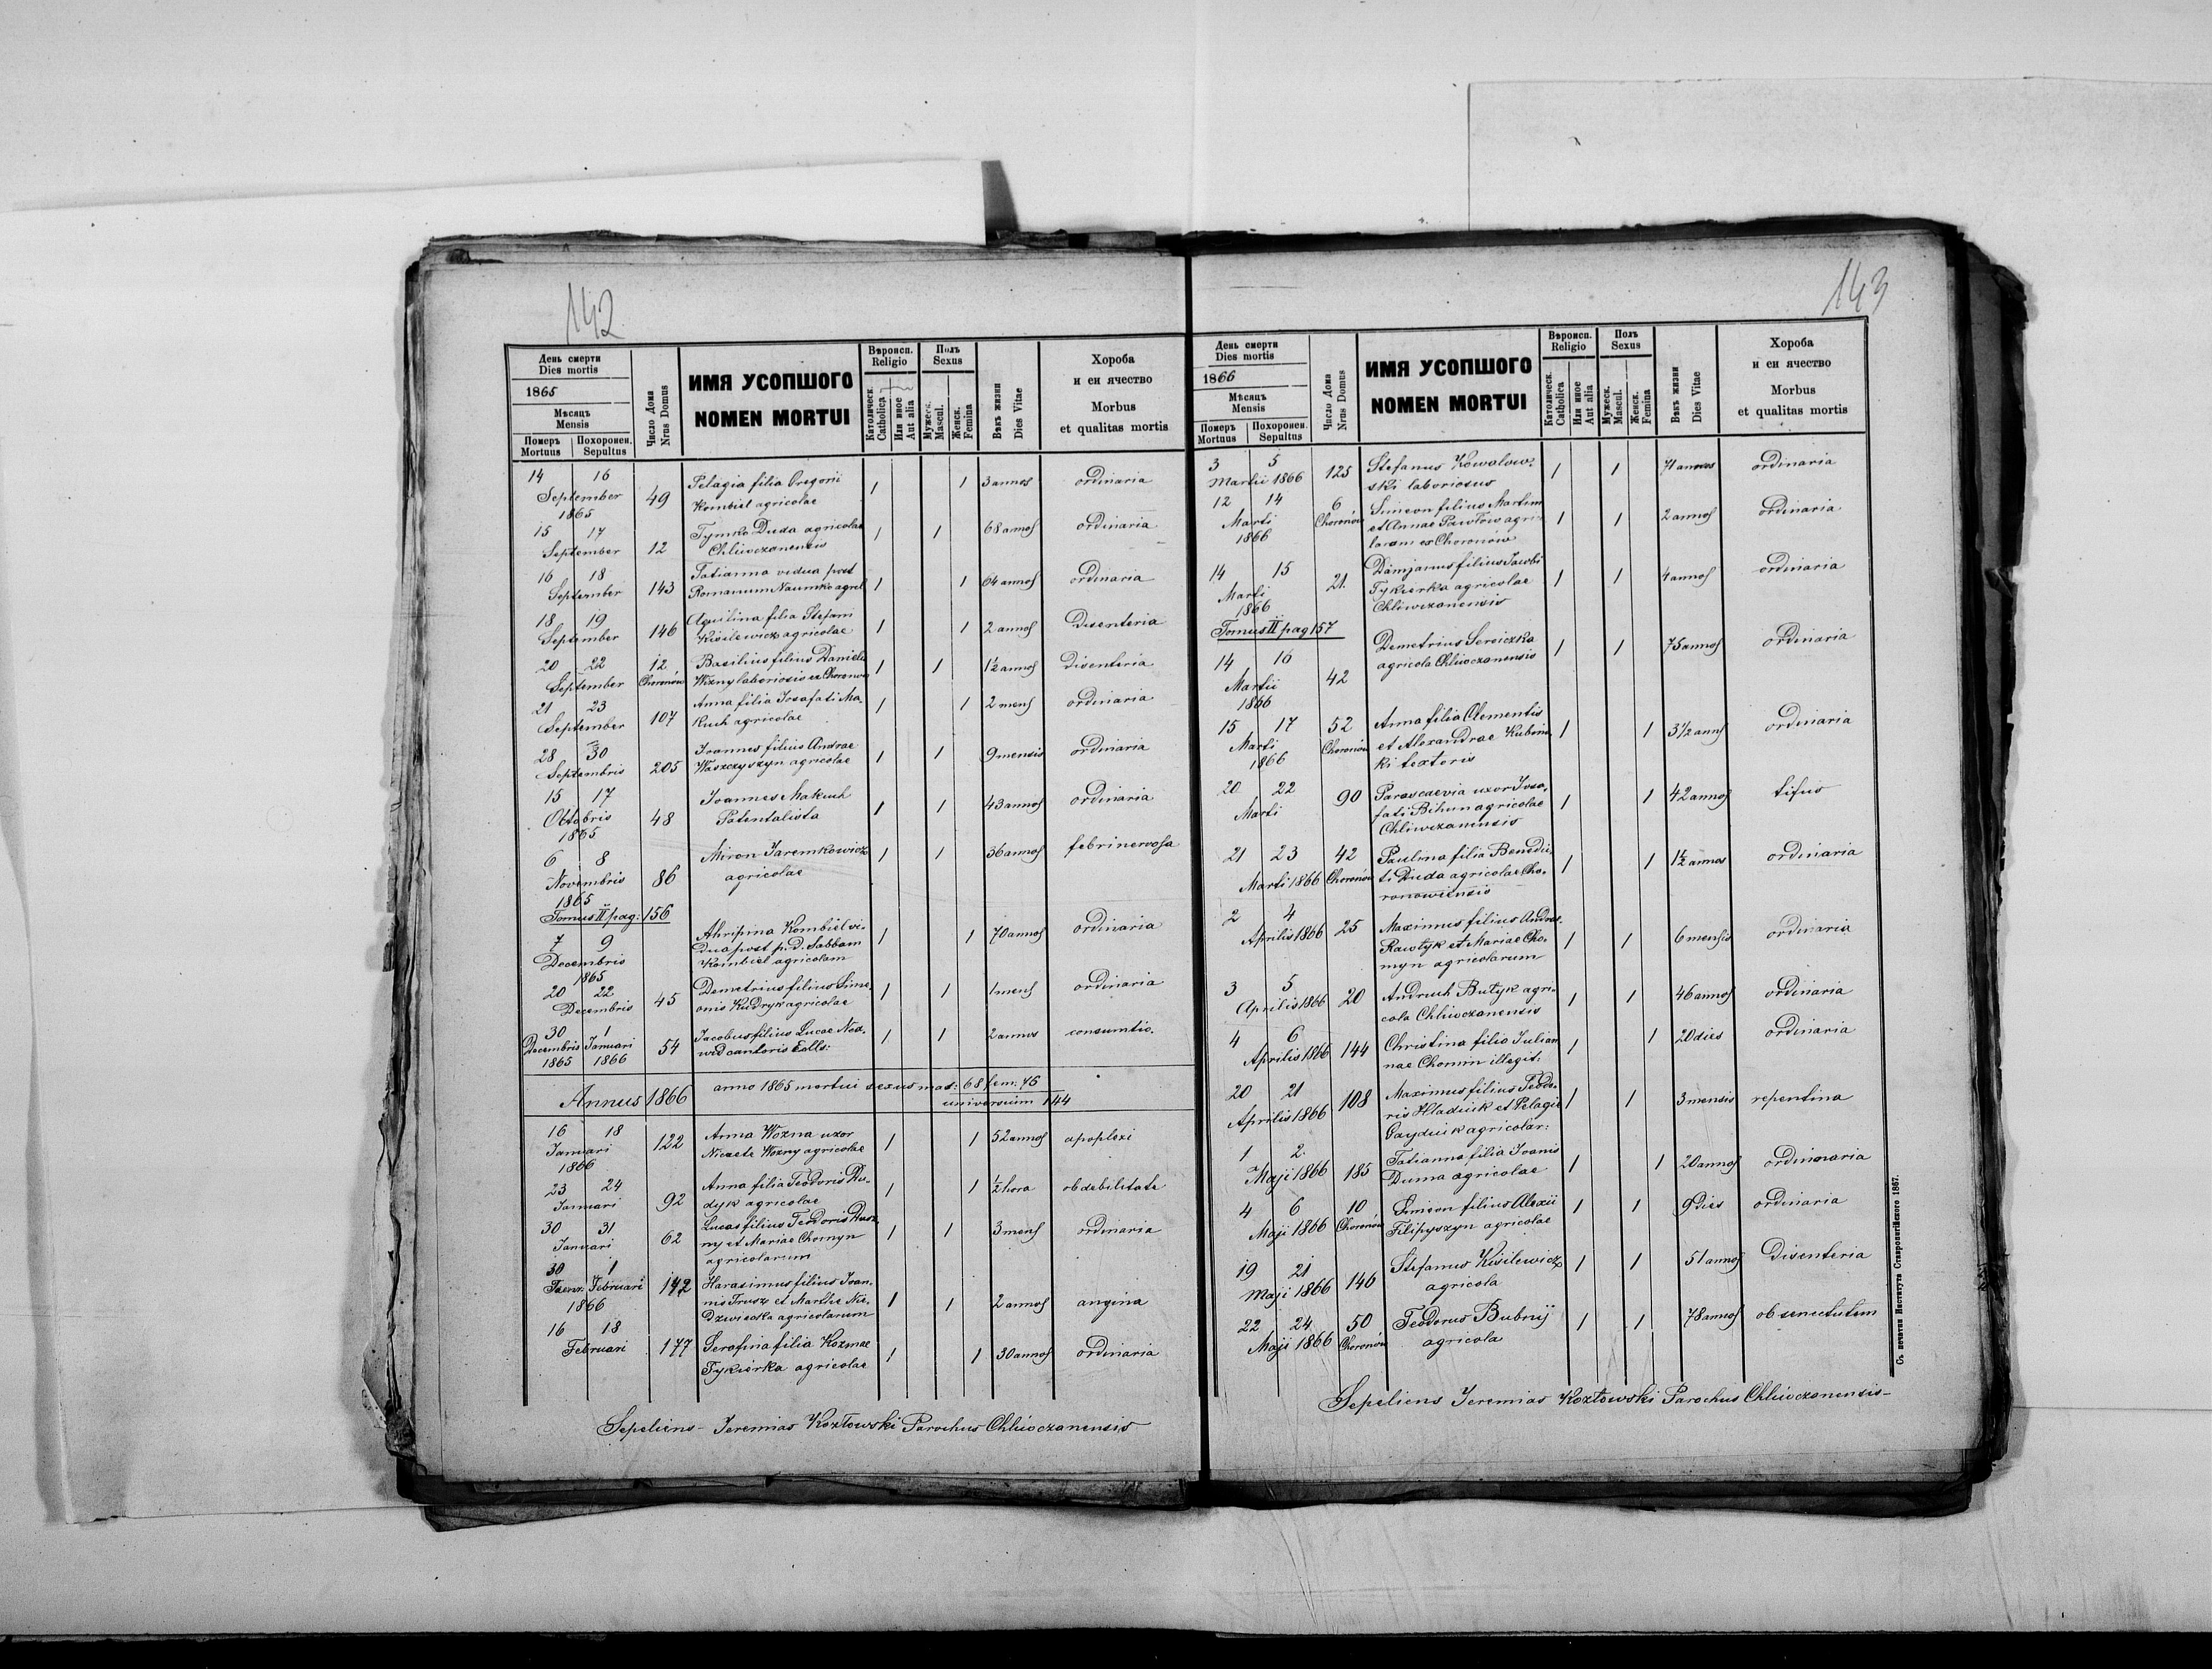 142
День смерти
Dies mortis
1865
Мѣсяць
Mensis
Померъ Похоронен.
Mortuus Sepultus
Число Дома
Nrus Domus
ИМЯ УСОПШОГО
NOMEN MORTUI
Вѣроисп.
Religio
Католическ.
Catholica
Или иное
Aut alia
Полъ
Sexus
Мужеск.
Mascul.
Женск.
Femina
Вѣкъ жизни
Dies Vitae
Хороба
и еи ячество
Morbus
et qualitas mortis
14 16 Pelagia filia Gregorii 1 1 3 annos ordinaria
September 49 Kombiel agricolae
1865
15 17 Tymko Duda agricolae 1 1 68 annos ordinaria
September 12 Chliwczanensis
16 18 Tatianna vidua post
September 143 Romanum Naumko agricol 1 1 64 annos ordinaria
18 19 Aquilina filia Stefani
September 146 Kisilewicz agricolae 1 1 2 annos Disenteria
20 22 12 Basilius filius Danielis
September Choronów Wozny laboriosis ex Choronów 1 1 1½ annos Disenteria
21 23 Anna filia Josafati Ma-
September 107 kuch agricolae 1 1 2 mens ordinaria
28 30 Joannes filius Andreae
Septembris 205 Waszczyszyn agricolae 1 1 9 mensis ordinaria
15 17 Joannes Makuch
Octobris 48 Patentalista 1 1 43 annos ordinaria
1865
6 8 Miron Jaremkowicz 1 1 36 annos febri nervosa
Novembris 86 agricolae
1865
Tomus II pag: 156
7 9 Ahripina Kombiel vi- 1 1 70 annos ordinaria
Decembris dua post p. d. Sabbam
1865 Kombiel agricolam
20 22 Demetrius filius Sime-
Decembris 45 onis Kudryk agricolae 1 1 1 mens ordinaria
30 1 Jacobus filius Lucae
Decembris Januari 54 cantoris Eccls: 1 1 2 annos consumtio.
1865 1866
Annus 1866 anno 1865 mortui sexus mas: 68 fem: 76
universum 144
16 18 Anna Wozna uxor
Januari 122 Nicaetae Wozny agricolae 1 1 52 annos apoplexi
1866
23 24 Anna filia Teodoris Ku-
Januari 92 dyk agricolae 1 1 ½ hora ob debilitate
30 31 Lucas filius Teodoris
Januari 62 ny et Mariae Chomyn 1 1 3 mens ordinaria
agricolarum
30 1 Harasimus filius Joan-
Januar. Februari 142 nis Trusz et Marthae Nie-
1866 dzwiecka agricolarum 1 1 2 annos angina
16 18
Februari 177 Serafina filia Kozmae
Tykierka agricolae 1 1 30 annos ordinaria
Sepeliens - Jeremias Kozłowski Parochus Chliwczanensis
143
День смерти
Dies mortis
1866
Мѣсяць
Mensis
Померъ Похоронен.
Mortuus Sepultus
Число Дома
Nrus Domus
ИМЯ УСОПШОГО
NOMEN MORTUI
Вѣроисп.
Religio
Католическ.
Catholica
Или иное
Aut alia
Полъ
Sexus
Мужеск.
Mascul.
Женск.
Femina
Вѣкъ жизни
Dies Vitae
Хороба
и еи ячество
Morbus
et qualitas mortis
3 5 125 Stefanus Kowalow- 1 1 71 annos ordinaria
Martii 1866 ski laboriosus
12 14 6 Simeon filius Martini
Marti Choronów et Annae Pawłow agri- 1 1 2 annos ordinaria
1866 larum ex Choronów
14 15 Damjanus filius Jacobi
Marti 21. Tykierka agricolae 1 1 4 annos ordinaria
1866 Chliwczanensis
Tomus II pag 157
14 16 Demetrius Sereiczka 1 1 75 annos ordinaria
Martii 42 agricola Chliwczanensis
1866
15 17 52 Anna filia Clementis
Marti Choronów et Alexandrae Kubins- 1 1 3½ anns ordinaria
1866 ki textoris
20 22 90 Parascaevia uxor Josa-
Marti fati Bihun agricolae 1 1 42 annos tifus
Chliwczanensis
21 23 42 Paulina filia Benedic-
Marti 1866 Choronów ti Duda agricolae Cho- 1 1 1½ annos ordinaria
ronowiensis
2 4 Maximus filius Andreae
Aprilis 1866 25 Rawtyk et Mariae Cho- 1 1 6 mensis ordinaria
myn agricolarum
3 5 Andruch Butyk agri-
Aprilis 1866 20 cola Chliwczanensis 1 1 46 annos ordinaria
4 6 Christina filia Julian-
Aprilis 1866 144 nae Chomin illegit: 1 1 20 dies ordinaria
20 21 Maximus filius Teodo-
Aprilis 1866 108 ris Hladiuk et Pelagie 1 1 3 mensis repentina
Gayduk agricolar:
1 2. Tatianna filia Joanis
Maji 1866 185 Duma agricolae 1 1 20 annos ordinaria
4 6 10 Simeon filius Alexii
Maji 1866 Choronów Filipyszyn agricolae 1 1 9 Dies ordinaria
19 21 Stefanus Kisilewicz 1 1 51 annos Disenteria
Maji 1866 146 agricola
22 24 50 Teodorus Bubnij 1 1 78 annos ob senectutem
Maji 1866 Choronów agricola
Sepeliens Jeremias Kozłowski Parochus Chliwczanensis-
Съ печатни Института Ставропигійского 1867.